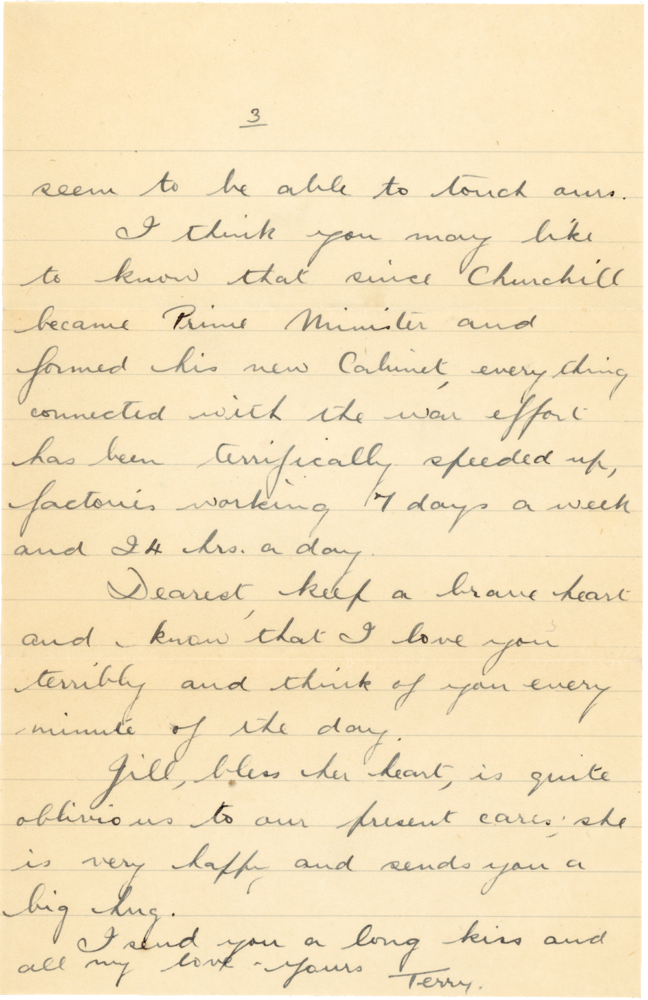 3
seem to be able to touch ours.
I think you may like
to know that since Churchill
became Prime Minister and
formed his new Cabinet, everything
connected with the war effort
has been terrifically speeded up,
factories working 7 days a week
and 24 hrs. a day.
Dearest, keep a brave heart
and know that I love you
terribly and think of you every
minute of the day.
Jill, bless her heart, is quite
oblivious to our present cares; she
is very happy and sends you a
big hug.
I send you a long kiss and
all my love - yours Terry.